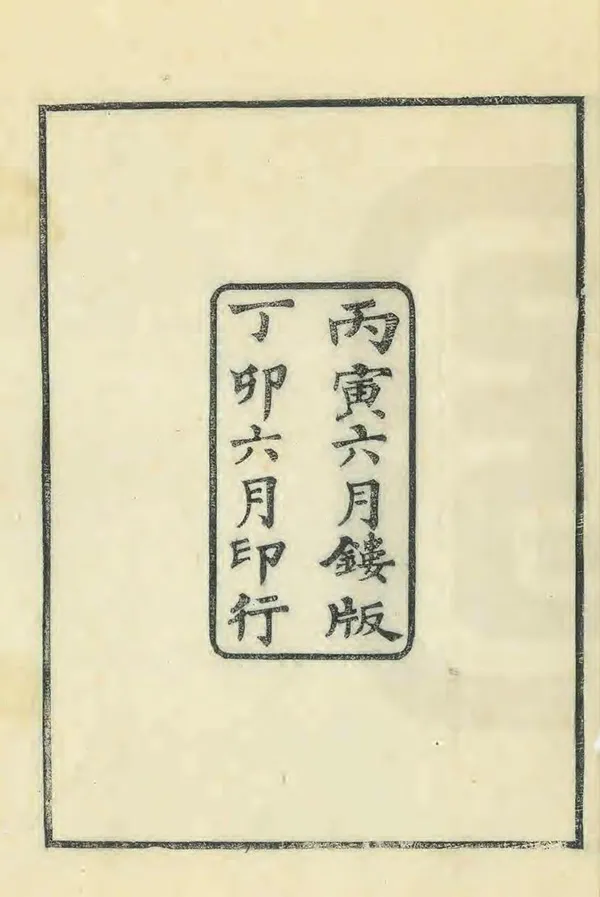 丙寅六月鏤版
丁卯六月印行